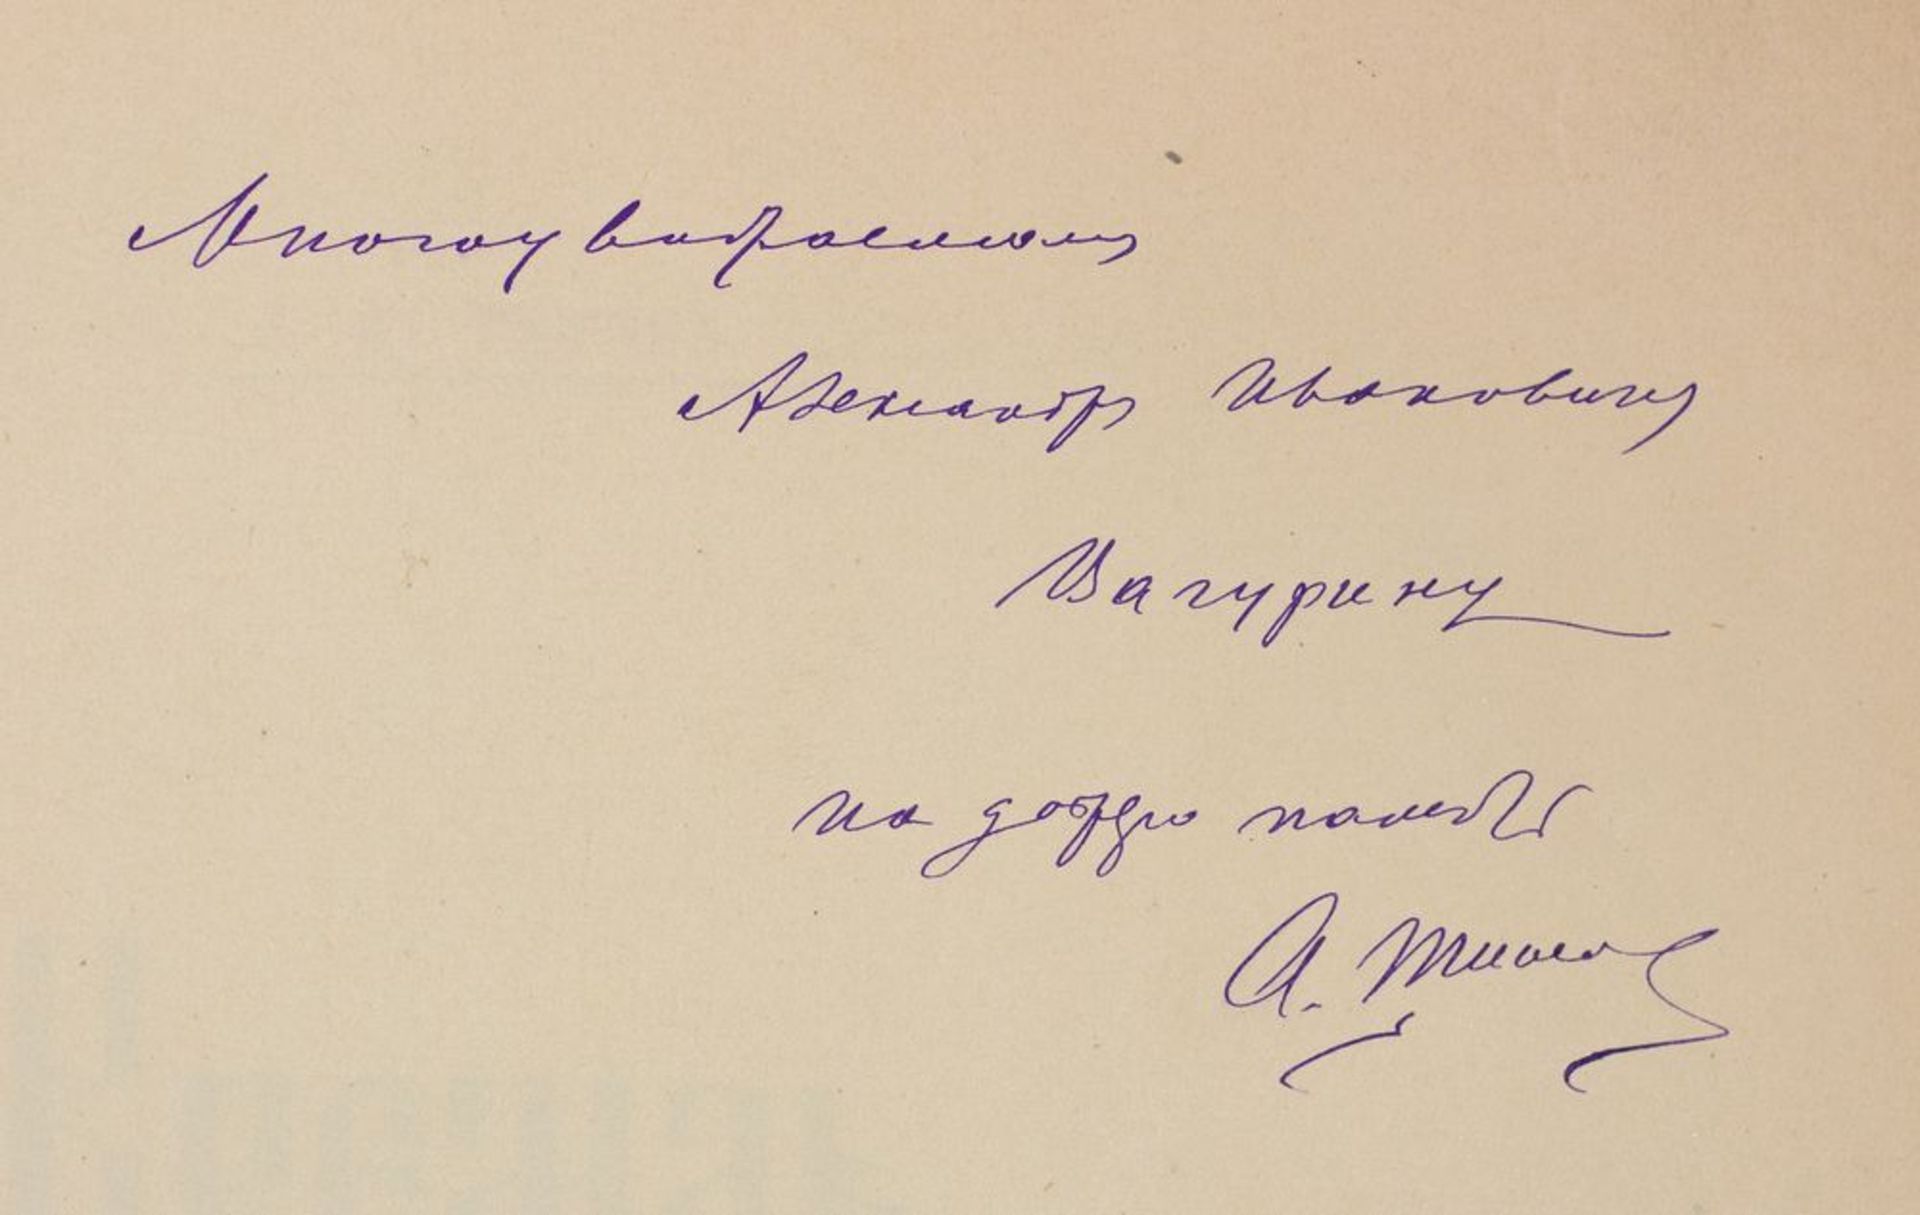 Многоуважаемому
Александру Ивановичу
Вагурину
на добрую память
А.